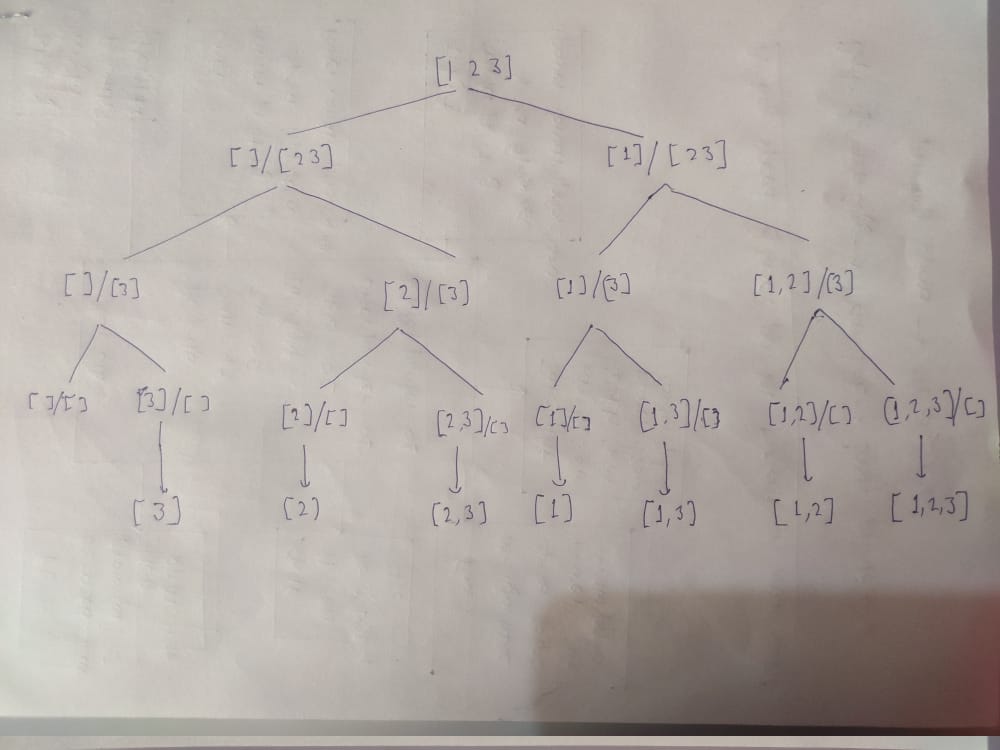 [1 2 3]
[ ]/[2 3] [1]/[2 3]
[ ]/[3] [2]/[3] [1]/[3] [1,2]/[3]
[ ]/[ ] [3]/[ ] [2]/[ ] [2,3]/[ ] [1]/[ ] [1,3]/[ ] [1,2]/[ ] [1,2,3]/[ ]
[3] [2] [2,3] [1] [1,3] [1,2] [1,2,3]